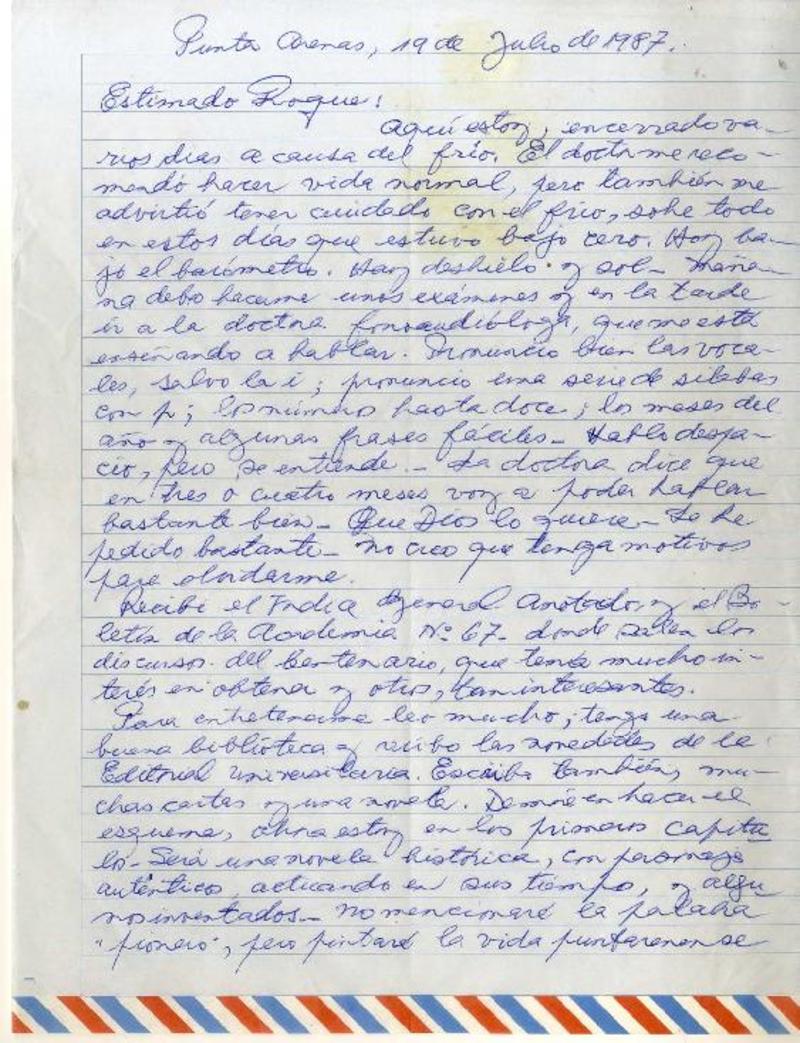 Punta Arenas, 19 de Julio de 1987.
Estimado Roque:
Aquí estoy, encerrado va-
rios dias a causa del frío. El doctor me reco-
mendó hacer vida normal, pero también me
advirtió tener cuidado con el frío, sobre todo
en estos días que estuvo bajo cero. Hoy ba-
jó el barómetro. Hay deshielo y sol- Maña-
na debo hacerme unos exámenes y en la tarde
ir a la doctora fonoaudióloga, que me está
enseñando a hablar. Pronuncio bien las voca-
les, salvo la i; pronuncio una serie de sílabas
con p; los números hasta doce; los meses del
año y algunas frases fáciles- Hablo despa-
cio, pero se entiende.- La doctora dice que
en tres o cuatro meses voy a poder hablar
bastante bien- Que Dios lo quiera- Le he
pedido bastante- No creo que tenga motivos
para olvidarme.
Recibí el Indice General Anotado, y el Bo-
letín de la Academia Nº 67- donde salen los
discursos del Centenario, que tenía mucho in-
terés en obtener y otros, tan interesantes.
Para entretenerme leo mucho; tengo una
buena biblioteca y recibo las novedades de la
Editorial Universitaria. Escribo también, mu-
chas cartas y una novela. Demoré en hacer el
esquema, ahora estoy en los primeros capítu
los- Será una novela histórica, con personajes
auténticos, actuando en sus tiempo, y algu
nos inventados- No mencionaré la palabra
"pionero", pero pintaré la vida puntarenense